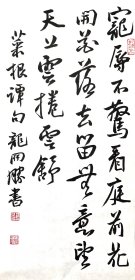 寵辱不驚看庭前花
開花落去留無意望
天上雲捲雲舒
菜根譚句龍開勝書